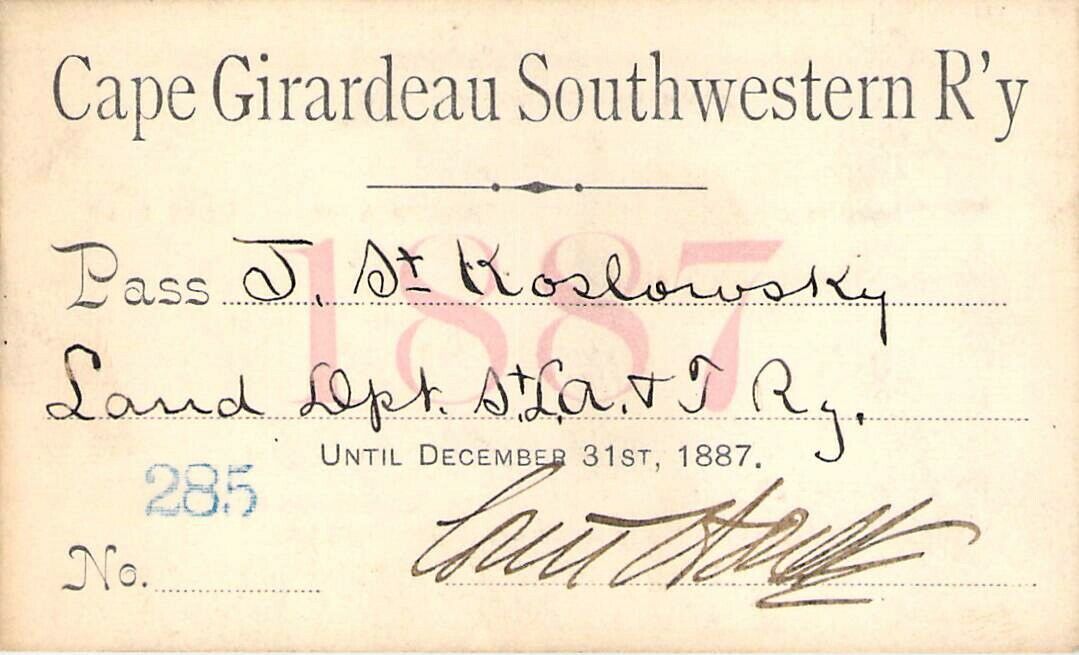 Cape Girardeau Southwestern R'y
1887
Pass J. St Koslowsky
Land Dpt. St. L. A. & T Ry.
UNTIL DECEMBER 31ST, 1887.
285
No.
Louis Houck